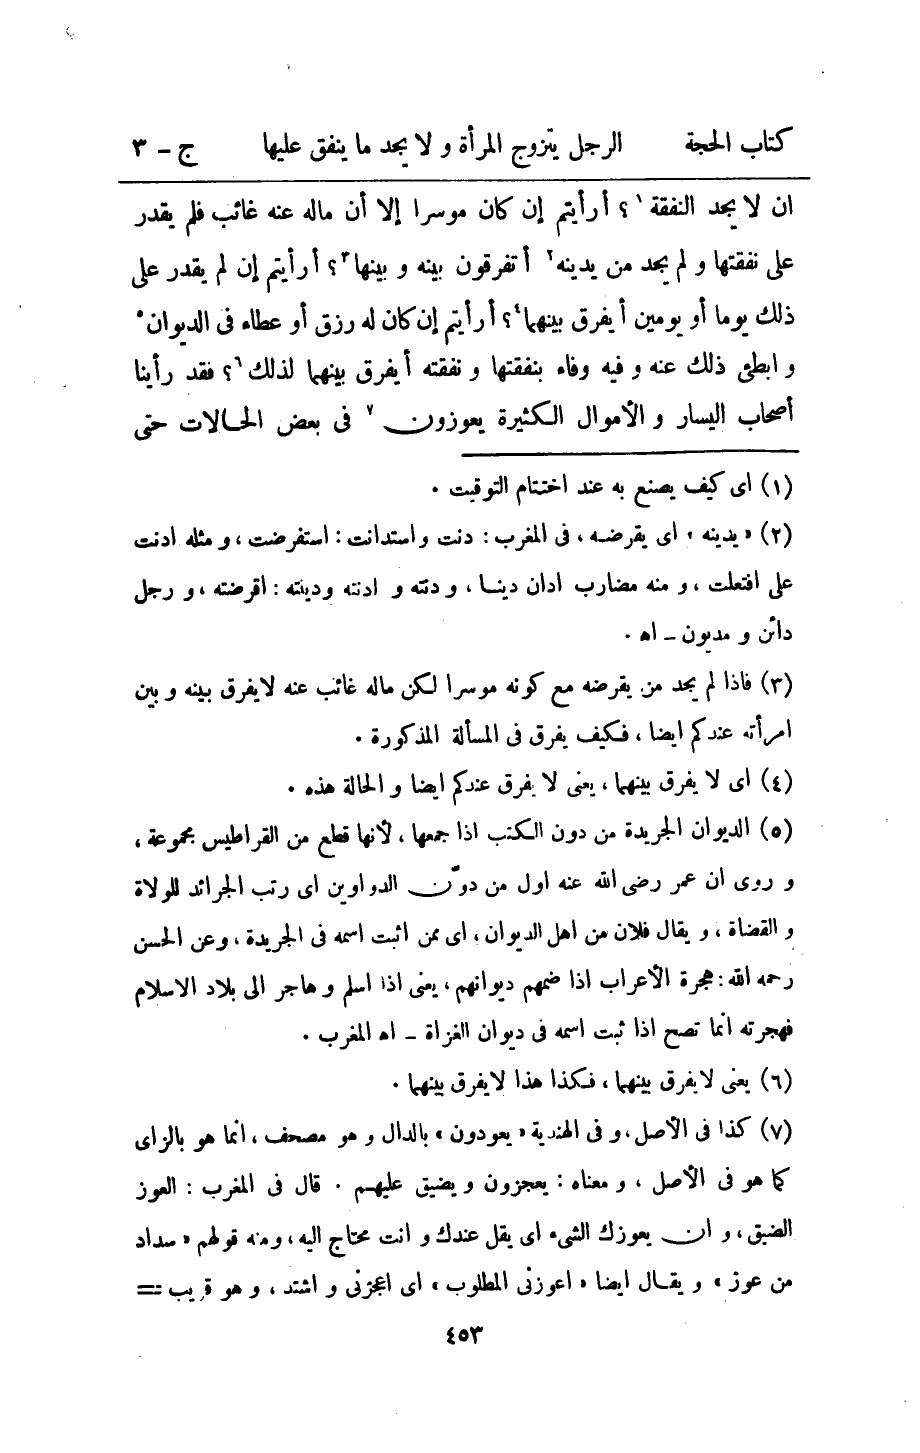 كتاب الحجة الرجل يتزوج المرأة و لا يجد ما ينفق عليها ج - ٣
ان لا يجد النفقة ١ ؟ أرأيتم إن كان موسرا إلا أن ماله عنه غائب فلم يقدر
على نفقتها و لم يجد من يدينه ٢ أتفرقون بينه و بينها ٣ ؟ أرأيتم إن لم يقدر على
ذلك يوما أو يومين أيفرق بينهما ٤ ؟ أرأيتم إن كان له رزق أو عطاء فى الديوان ٥
و ابطئ ذلك عنه و فيه وفاء بنفقتها و نفقته أيفرق بينهما لذلك ٦ ؟ فقد رأينا
أصحاب اليسار و الأموال الكثيرة يعوزون ٧ فى بعض الحالات حتى
(١) اى كيف يصنع به عند اختتام التوقيت .
(٢) « يدينه » اى يقرضه ، فى المغرب : دنت واستدانت : استقرضت ، و مثله ادنت
على افتعلت ، و منه مضارب ادان دينا ، و دنته و ادنته ودينته : اقرضته ، و رجل
دائن و مديون - اه .
(٣) فاذا لم يجد من يقرضه مع كونه موسرا لكن ماله غائب عنه لايفرق بينه و بين
امرأته عندكم ايضا ، فكيف يفرق فى المسألة المذكورة .
(٤) اى لا يفرق بينهما ، يعنى لا يفرق عندكم ايضا و الحالة هذه .
(٥) الديوان الجريدة من دون الكتب اذا جمعها ، لأنها قطع من القراطيس مجموعة ،
و روى ان عمر رضى الله عنه اول من دوّن الدواوين اى رتب الجرائد للولاة
و القضاة ، و يقال فلان من اهل الديوان ، اى ممن اثبت اسمه فى الجريدة ، وعن الحسن
رحمه الله : هجرة الأعراب اذا ضمهم ديوانهم ، يعنى اذا اسلم و هاجر الى بلاد الاسلام
فهجرته انما تصح اذا ثبت اسمه فى ديوان الغزاة - اه المغرب .
(٦) يعنى لايفرق بينهما ، فكذا هذا لايفرق بينهما .
(٧) كذا فى الأصل ، و فى الهندية « يعودون » بالدال و هو مصحف ، انما هو بالزاى
كما هو فى الأصل ، و معناه : يعجزون و يضيق عليهم . قال فى المغرب : العوز
الضيق ، و ان يعوزك الشىء اى يقل عندك و انت محتاج اليه ، ومنه قولهم « سداد
من عوز » و يقال ايضا « اعوزنى المطلوب » اى اعجزنى و اشتد ، و هو قريب =
٤٥٣